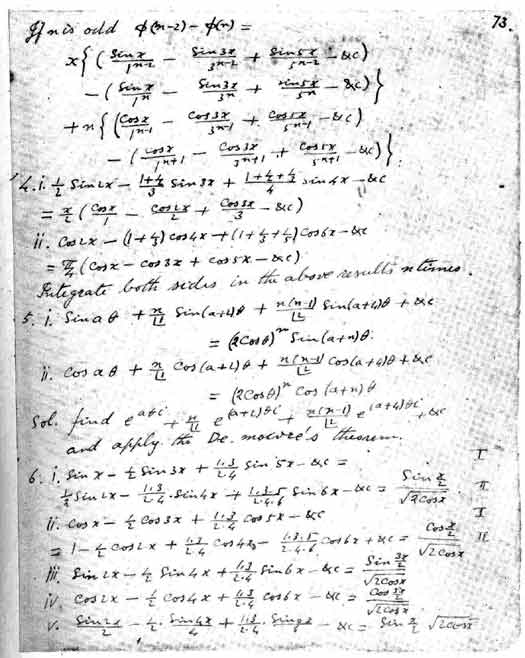 73.
If n is odd φ(n-2) - φ(n) =
x{(Sin x/1^{n-2} - Sin 3x/3^{n-2} + Sin 5x/5^{n-2} - &c)
- (Sin x/1^n - Sin 3x/3^n + Sin 5x/5^n - &c)}
+ n{(Cos x/1^{n-1} - Cos 3x/3^{n-1} + Cos 5x/5^{n-1} - &c)
- (Cos x/1^{n+1} - Cos 3x/3^{n+1} + Cos 5x/5^{n+1} - &c)}.
4. i. 1/2 Sin 2x - (1+1/2)/3 Sin 3x + (1+1/2+1/3)/4 Sin 4x - &c
= x/2 (Cos x/1 - Cos 2x/2 + Cos 3x/3 - &c)
ii. Cos 2x - (1+1/3) Cos 4x + (1+1/3+1/5) Cos 6x - &c
= π/4 (Cos x - Cos 3x + Cos 5x - &c)
Integrate both sides in the above results n times.
5. i. Sin aθ + n/|1 Sin (a+2)θ + n(n-1)/|2 Sin (a+4)θ + &c
= (2 Cos θ)^n Sin (a+n)θ.
ii. Cos aθ + n/|1 Cos (a+2)θ + n(n-1)/|2 Cos (a+4)θ + &c
= (2 Cos θ)^n Cos (a+n)θ
Sol. find e^{aθi} + n/|1 e^{(a+2)θi} + n(n-1)/|2 e^{(a+4)θi} + &c
and apply the De. moivre's theorem.
6. i. Sin x - 1/2 Sin 3x + 1.3/2.4 Sin 5x - &c = I
1/2 Sin 2x - 1.3/2.4 . Sin 4x + 1.3.5/2.4.6 Sin 6x - &c = Sin x/2 / √2Cos x . II
ii. Cos x - 1/2 Cos 3x + 1.3/2.4 Cos 5x - &c I
= 1 - 1/2 Cos 2x + 1.3/2.4 Cos 4x - 1.3.5/2.4.6 Cos 6x + &c = Cos x/2 / √2Cos x II
iii. Sin 2x - 1/2 Sin 4x + 1.3/2.4 Sin 6x - &c = Sin 3x/2 / √2Cos x
iv. Cos 2x - 1/2 Cos 4x + 1.3/2.4 Cos 6x - &c = Cos 3x/2 / √2Cos x
v. Sin 2x/2 - 1/2 . Sin 4x/4 + 1.3/2.4 . - &c = Sin x/2 √2Cos x